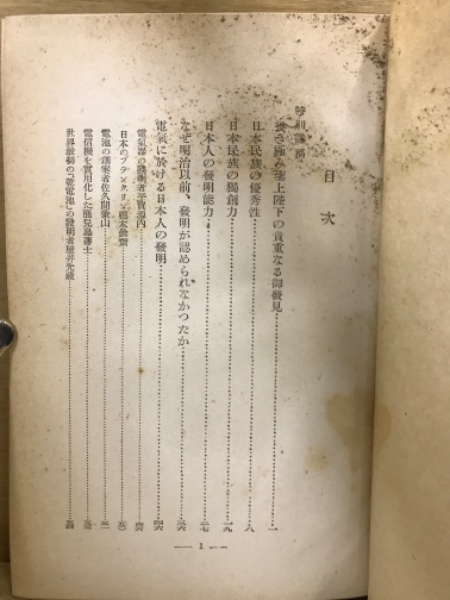 目次
畏き極み聖上陛下の貴重なる御發見……一
日本民族の優秀性……八
日本民族の獨創力……一九
日本人の發明能力……二七
なぜ明治以前、發明が認められなかつたか……三六
電氣に於ける日本人の發明……四六
電氣器の發明者平賀源内……四六
日本のフランクリン橋本曇齋
電池の創案者佐久間象山
電信機を實用化した
世界最初の『乾電池』の發明者屋井先藏
— 1 —